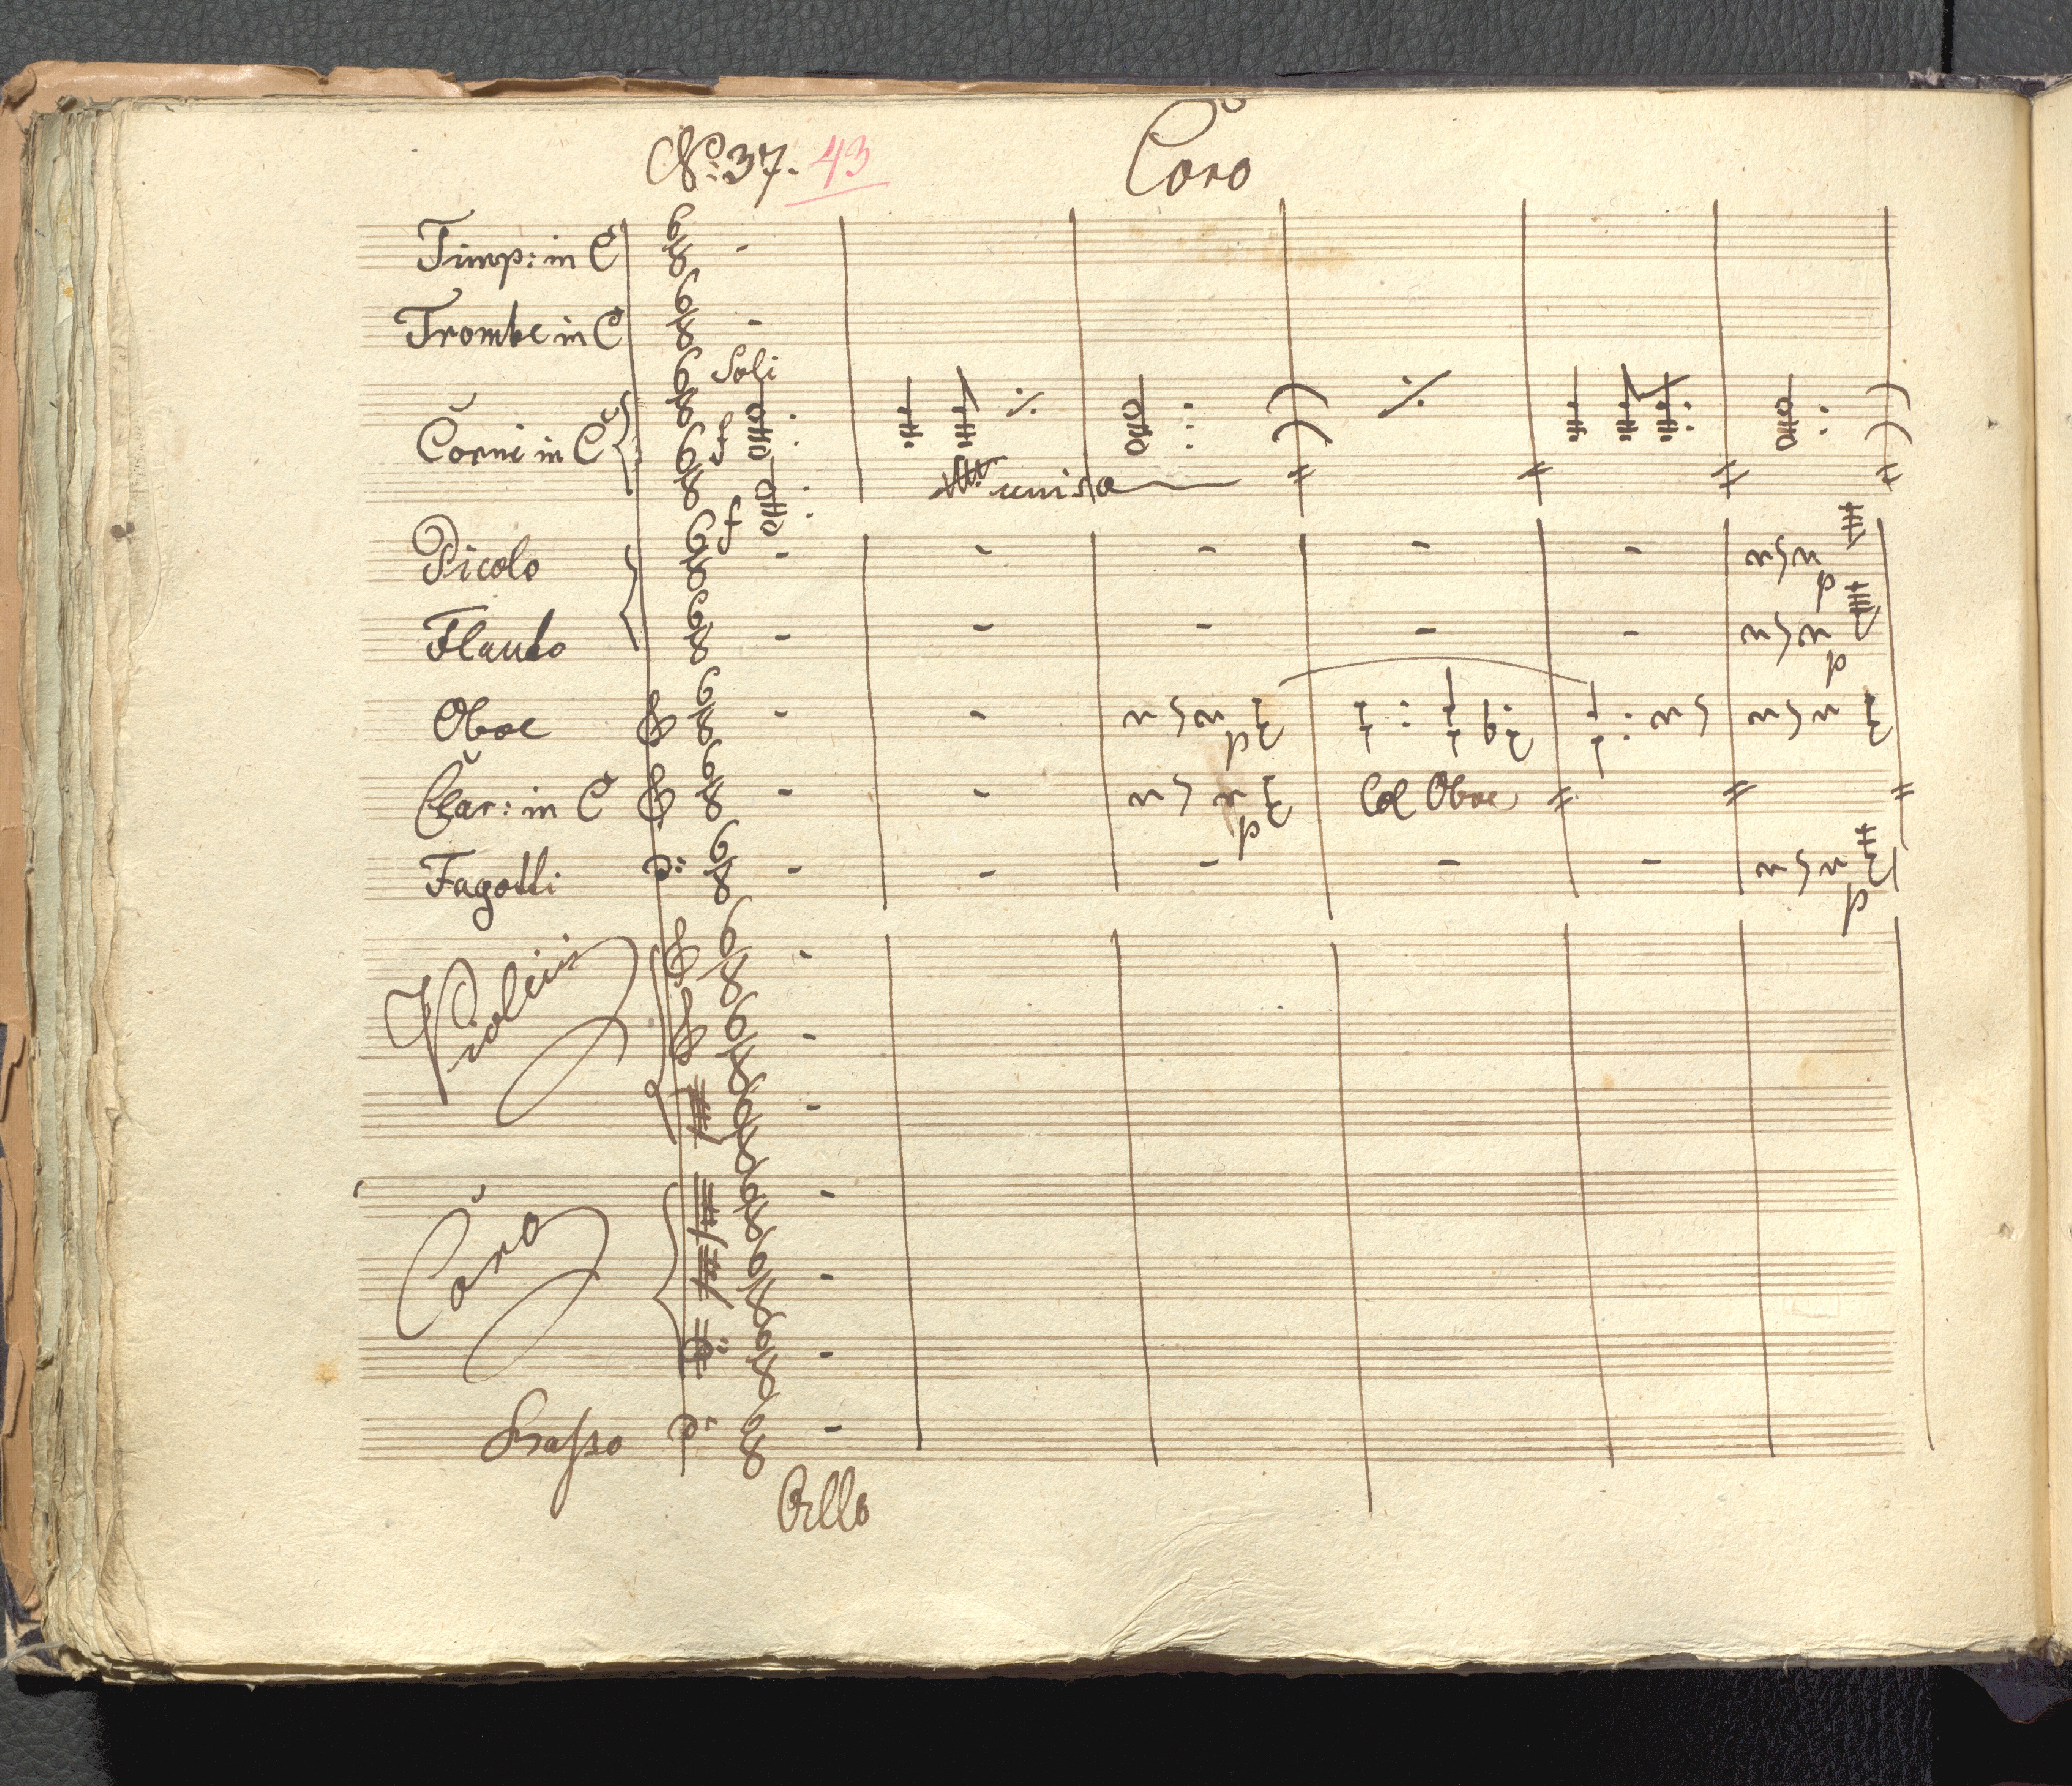 No: 37. 43
Coro
Timp: in C
Trombe in C
Soli
Corni in C
f
unis
f
Picolo
p
Flauto
p
Oboe
p
Clar: in C
Col Oboe
p
Fagotti
p
Violini
Coro
Basso
Allo